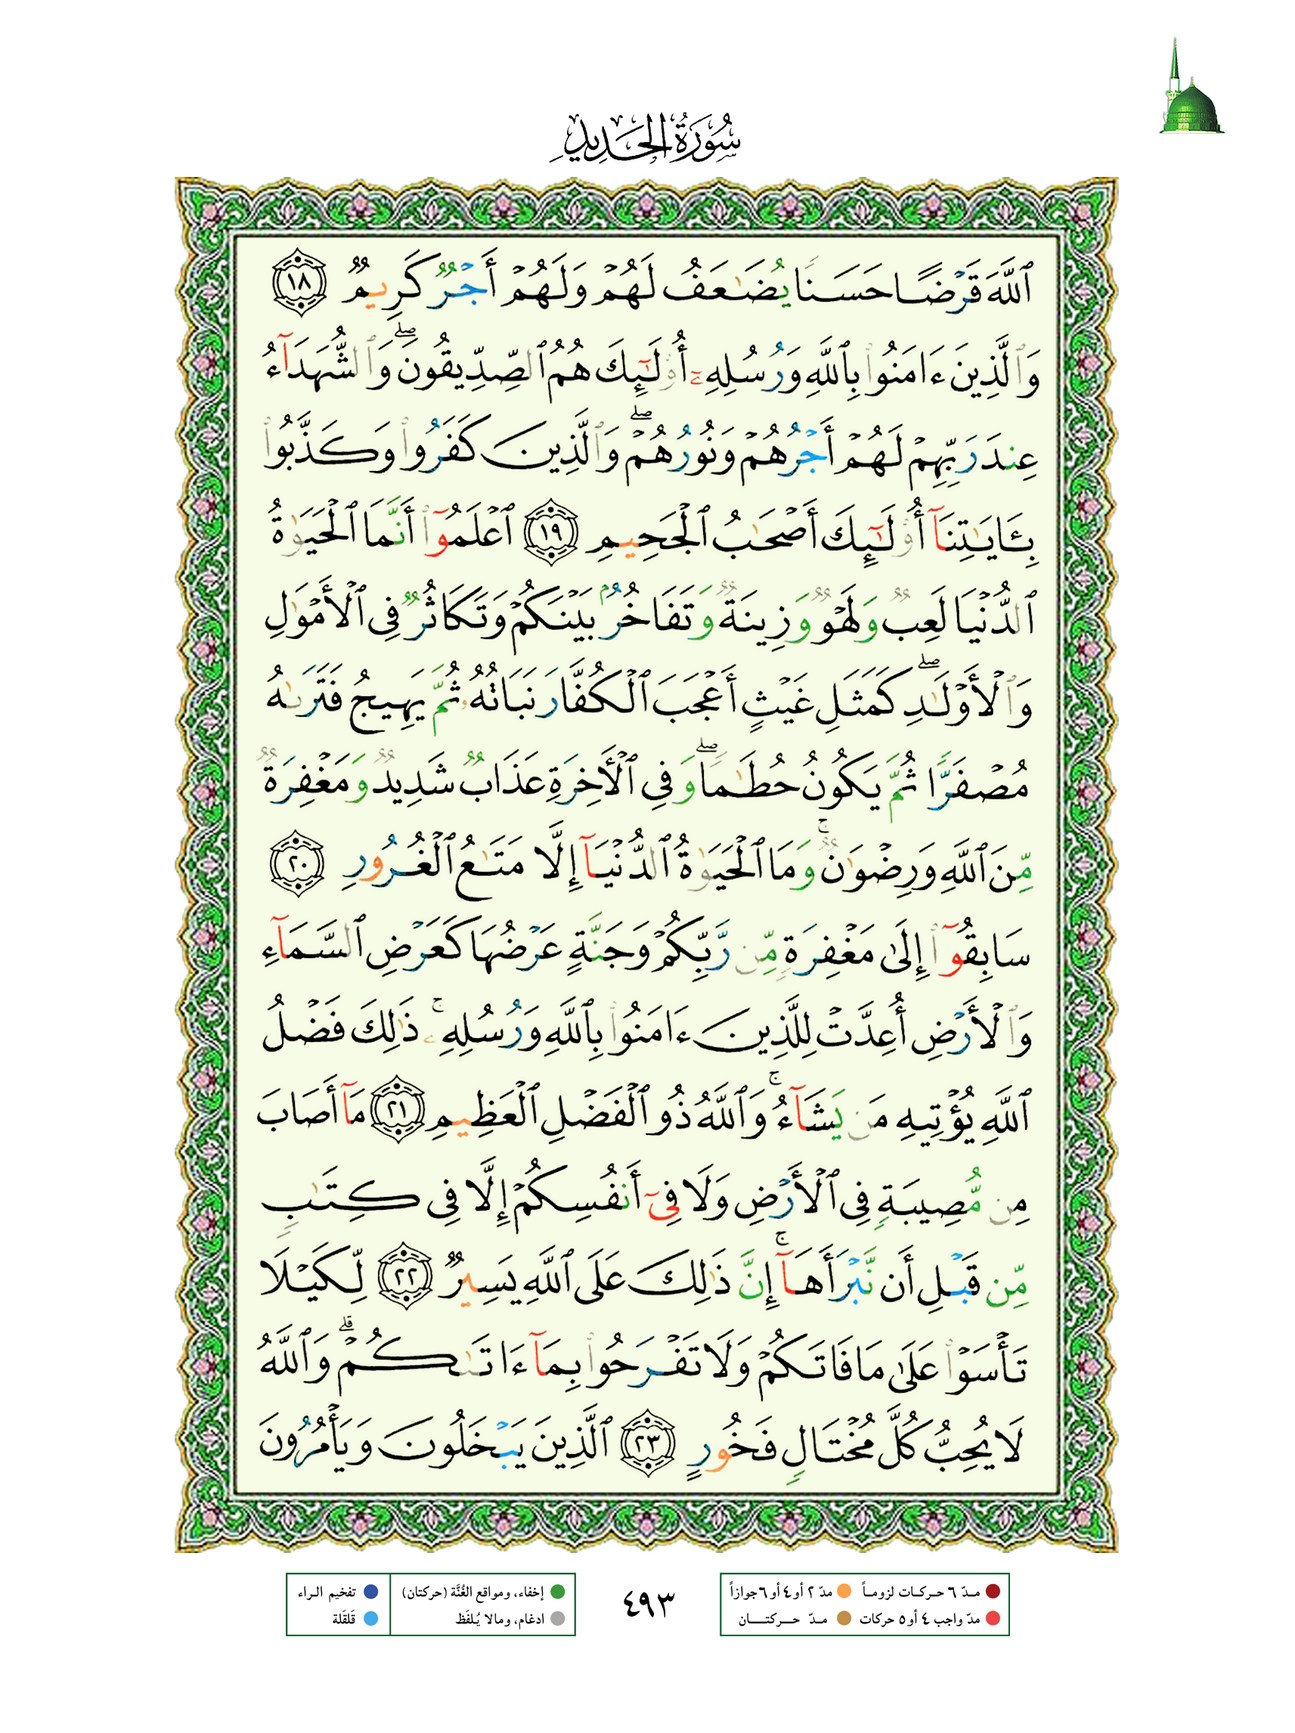 سُورَةُ الحَدِيدِ
ٱللَّهَ قَرْضًا حَسَنًا يُضَٰعَفُ لَهُمْ وَلَهُمْ أَجْرٌ كَرِيمٌ ١٨
وَٱلَّذِينَ ءَامَنُوا۟ بِٱللَّهِ وَرُسُلِهِۦٓ أُو۟لَٰٓئِكَ هُمُ ٱلصِّدِّيقُونَ ۖ وَٱلشُّهَدَآءُ
عِندَ رَبِّهِمْ لَهُمْ أَجْرُهُمْ وَنُورُهُمْ ۖ وَٱلَّذِينَ كَفَرُوا۟ وَكَذَّبُوا۟
بِـَٔايَٰتِنَآ أُو۟لَٰٓئِكَ أَصْحَٰبُ ٱلْجَحِيمِ ١٩ ٱعْلَمُوٓا۟ أَنَّمَا ٱلْحَيَوٰةُ
ٱلدُّنْيَا لَعِبٌ وَلَهْوٌ وَزِينَةٌ وَتَفَاخُرٌۢ بَيْنَكُمْ وَتَكَاثُرٌ فِى ٱلْأَمْوَٰلِ
وَٱلْأَوْلَٰدِ ۖ كَمَثَلِ غَيْثٍ أَعْجَبَ ٱلْكُفَّارَ نَبَاتُهُۥ ثُمَّ يَهِيجُ فَتَرَىٰهُ
مُصْفَرًّا ثُمَّ يَكُونُ حُطَٰمًا ۖ وَفِى ٱلْءَاخِرَةِ عَذَابٌ شَدِيدٌ وَمَغْفِرَةٌ
مِّنَ ٱللَّهِ وَرِضْوَٰنٌ ۚ وَمَا ٱلْحَيَوٰةُ ٱلدُّنْيَآ إِلَّا مَتَٰعُ ٱلْغُرُورِ ٢٠
سَابِقُوٓا۟ إِلَىٰ مَغْفِرَةٍ مِّن رَّبِّكُمْ وَجَنَّةٍ عَرْضُهَا كَعَرْضِ ٱلسَّمَآءِ
وَٱلْأَرْضِ أُعِدَّتْ لِلَّذِينَ ءَامَنُوا۟ بِٱللَّهِ وَرُسُلِهِۦ ۚ ذَٰلِكَ فَضْلُ
ٱللَّهِ يُؤْتِيهِ مَن يَشَآءُ ۚ وَٱللَّهُ ذُو ٱلْفَضْلِ ٱلْعَظِيمِ ٢١ مَآ أَصَابَ
مِن مُّصِيبَةٍ فِى ٱلْأَرْضِ وَلَا فِىٓ أَنفُسِكُمْ إِلَّا فِى كِتَٰبٍ
مِّن قَبْلِ أَن نَّبْرَأَهَآ ۚ إِنَّ ذَٰلِكَ عَلَى ٱللَّهِ يَسِيرٌ ٢٢ لِّكَيْلَا
تَأْسَوْا۟ عَلَىٰ مَا فَاتَكُمْ وَلَا تَفْرَحُوا۟ بِمَآ ءَاتَىٰكُمْ ۗ وَٱللَّهُ
لَا يُحِبُّ كُلَّ مُخْتَالٍ فَخُورٍ ٢٣ ٱلَّذِينَ يَبْخَلُونَ وَيَأْمُرُونَ
مـدّ ٦ حـركـات لزومـاً مدّ ٢ أو ٤ أو ٦ جوازاً
مدّ واجب ٤ أو ٥ حركات مـدّ حـــركتــــان
٤٩٣
إخفاء، ومواقع الغُنَّة (حركتان) تفخيم الـراء
ادغام، ومالا يُـلفَظ قَلقَلة